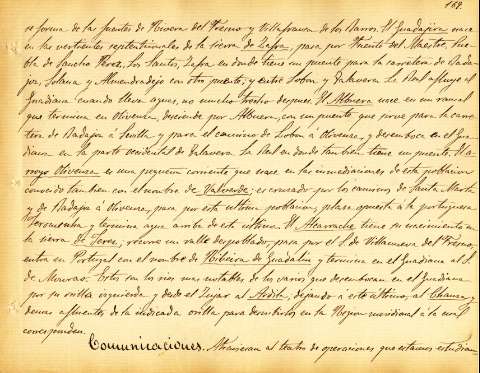 169.
se forma de las fuentes de Rivera del Fresno y Villafranca de los Barros. El Guadajira nace
en las vertientes septentrionales de la sierra de Zafra, pasa por Fuente del Maestre, Pue-
bla de Sancho Perez, los Santos, Zafra en donde tiene un puente para la carretera de Bada-
joz, Solana y Almendralejo con otro puente, y entre Lobon y Talavera la Real afluye al
Guadiana cuando lleva aguas, no mucho trecho despues. El Albuera nace en un ramal
que termina en Olivenza, desciende por Albuera, con un puente que sirve para la carre-
tera de Badajoz á Sevilla y para el camino de Lobon á Olivenza, y desemboca en el Gua-
diana en la parte occidental de Talavera la Real en donde tambien tiene un puente. El a-
rroyo Olivenza es una pequeña corriente que nace en las inmediaciones de esta poblacion
conocido tambien con el nombre de Valverde; es cruzado por los caminos de Santa Marta
y de Badajoz á Olivenza, pasa por esta última poblacion, plaza opuesta á la portuguesa
Jerumenha y termina agua arriba de esta última. El Alcarrache tiene su nacimiento en
la sierra de Jerez, recorre un valle despoblado, pasa por el S. de Villanueva del Fresno,
entra en Portugal con el nombre de Ribeira de Guadalim y termina en el Guadiana al S.
de Mourao. Estos son los rios mas notables de los varios que desembocan en el Guadiana
por su orilla izquierda y desde el Zujar al Ardila, dejando á este último, al Chanza y
demas afluentes de la indicada orilla para describirlos en la Region meridional á la cual
corresponden.
Comunicaciones. Atraviesan al teatro de operaciones que estamos estudian-